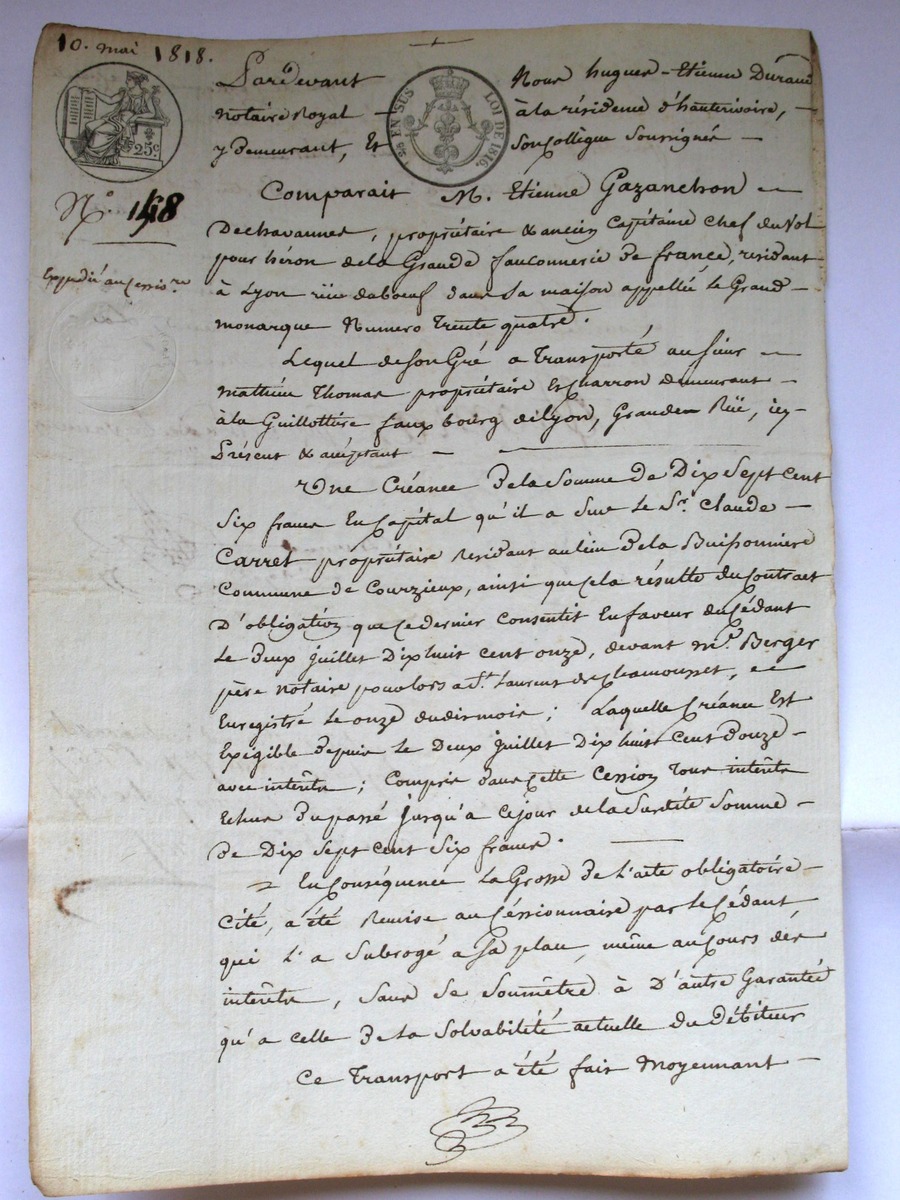 10. mai 1818.
Pardevant Nous hugues-Etienne Durand
notaire Royal à la résidence d'hauterivoire,
y Demeurant, Et Son Collègue Soussignés
25c
EN SUS LOI DE 1816.
N.° 148
Expédié au Cessionre
Comparait M. Etienne Gazanchon
Dechavannes, propriétaire & ancien Capitaine Chef du Vol
pour héron de la Grande fauconnerie de france, residant
à Lyon rüe du boeuf dans Sa maison appellée le Grand
monarque Numero Trente quatre.
Lequel de Son Gré a Transporté au Sieur
Mathieu Thomas propriétaire Et Charron demeurant
à la Guillottière faux bourg de lyon, Grande Rüe, icy
Présent & acceptant
Une Créance De la Somme de Dix Sept Cent
Six francs En Capital qu'il a Sur Le Sr. Claude
Carret propriétaire Residant au lieu De la Buissonniere
Commune de Courzieux, ainsi que cela résulte du Contract
D'obligation que Ce dernier Consentit En faveur du Cédant
Le Deux Juillet Dix huit cent onze, devant me. Berger
père notaire pour lors a St. Laurent de Chamousset,
Enregistré Le onze dudit mois; Laquelle Créance Est
Exigible Depuis Le Deux Juillet Dix huit Cent Douze
avec intérêts; Compris dans Cette Cession Tous intérêts
Echus Du passé Jusqu'à Ce jour de la Susdite Somme
de Dix Sept Cent Six francs.
En Conséquence La Grosse de L'acte obligatoire
Cité, a été Remise au Céssionnaire par Le Cédant
qui L'a Subrogé a Sa place, même au Cours des
intérêts, Sans Se Soumêtre à D'autre Garantie
qu'a Celle De la Solvabilité actuelle du Débiteur
Ce Transport a été fait Moyennant